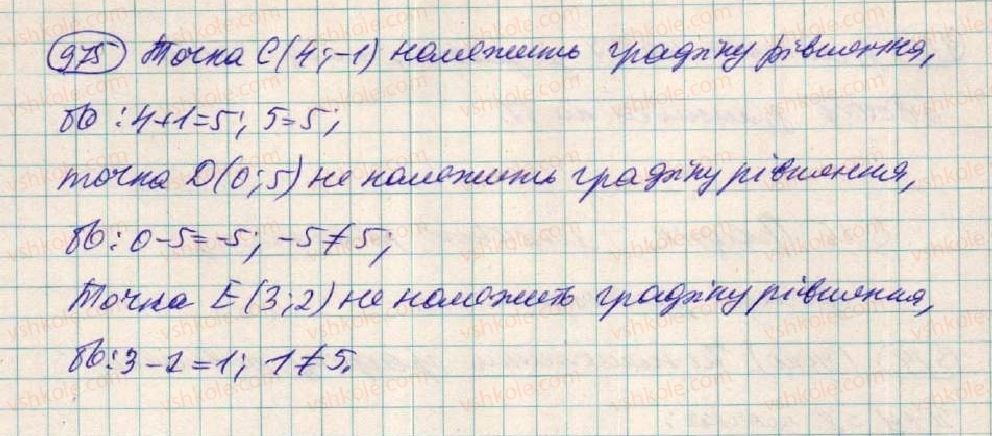 975 Точка C(4; -1) належить графіку рівняння,
бо: 4+1=5; 5=5;
точка D(0; 5) не належить графіку рівняння,
бо: 0-5=-5; -5≠5;
Точка E(3; 2) не належить графіку рівняння,
бо: 3-2=1; 1≠5.